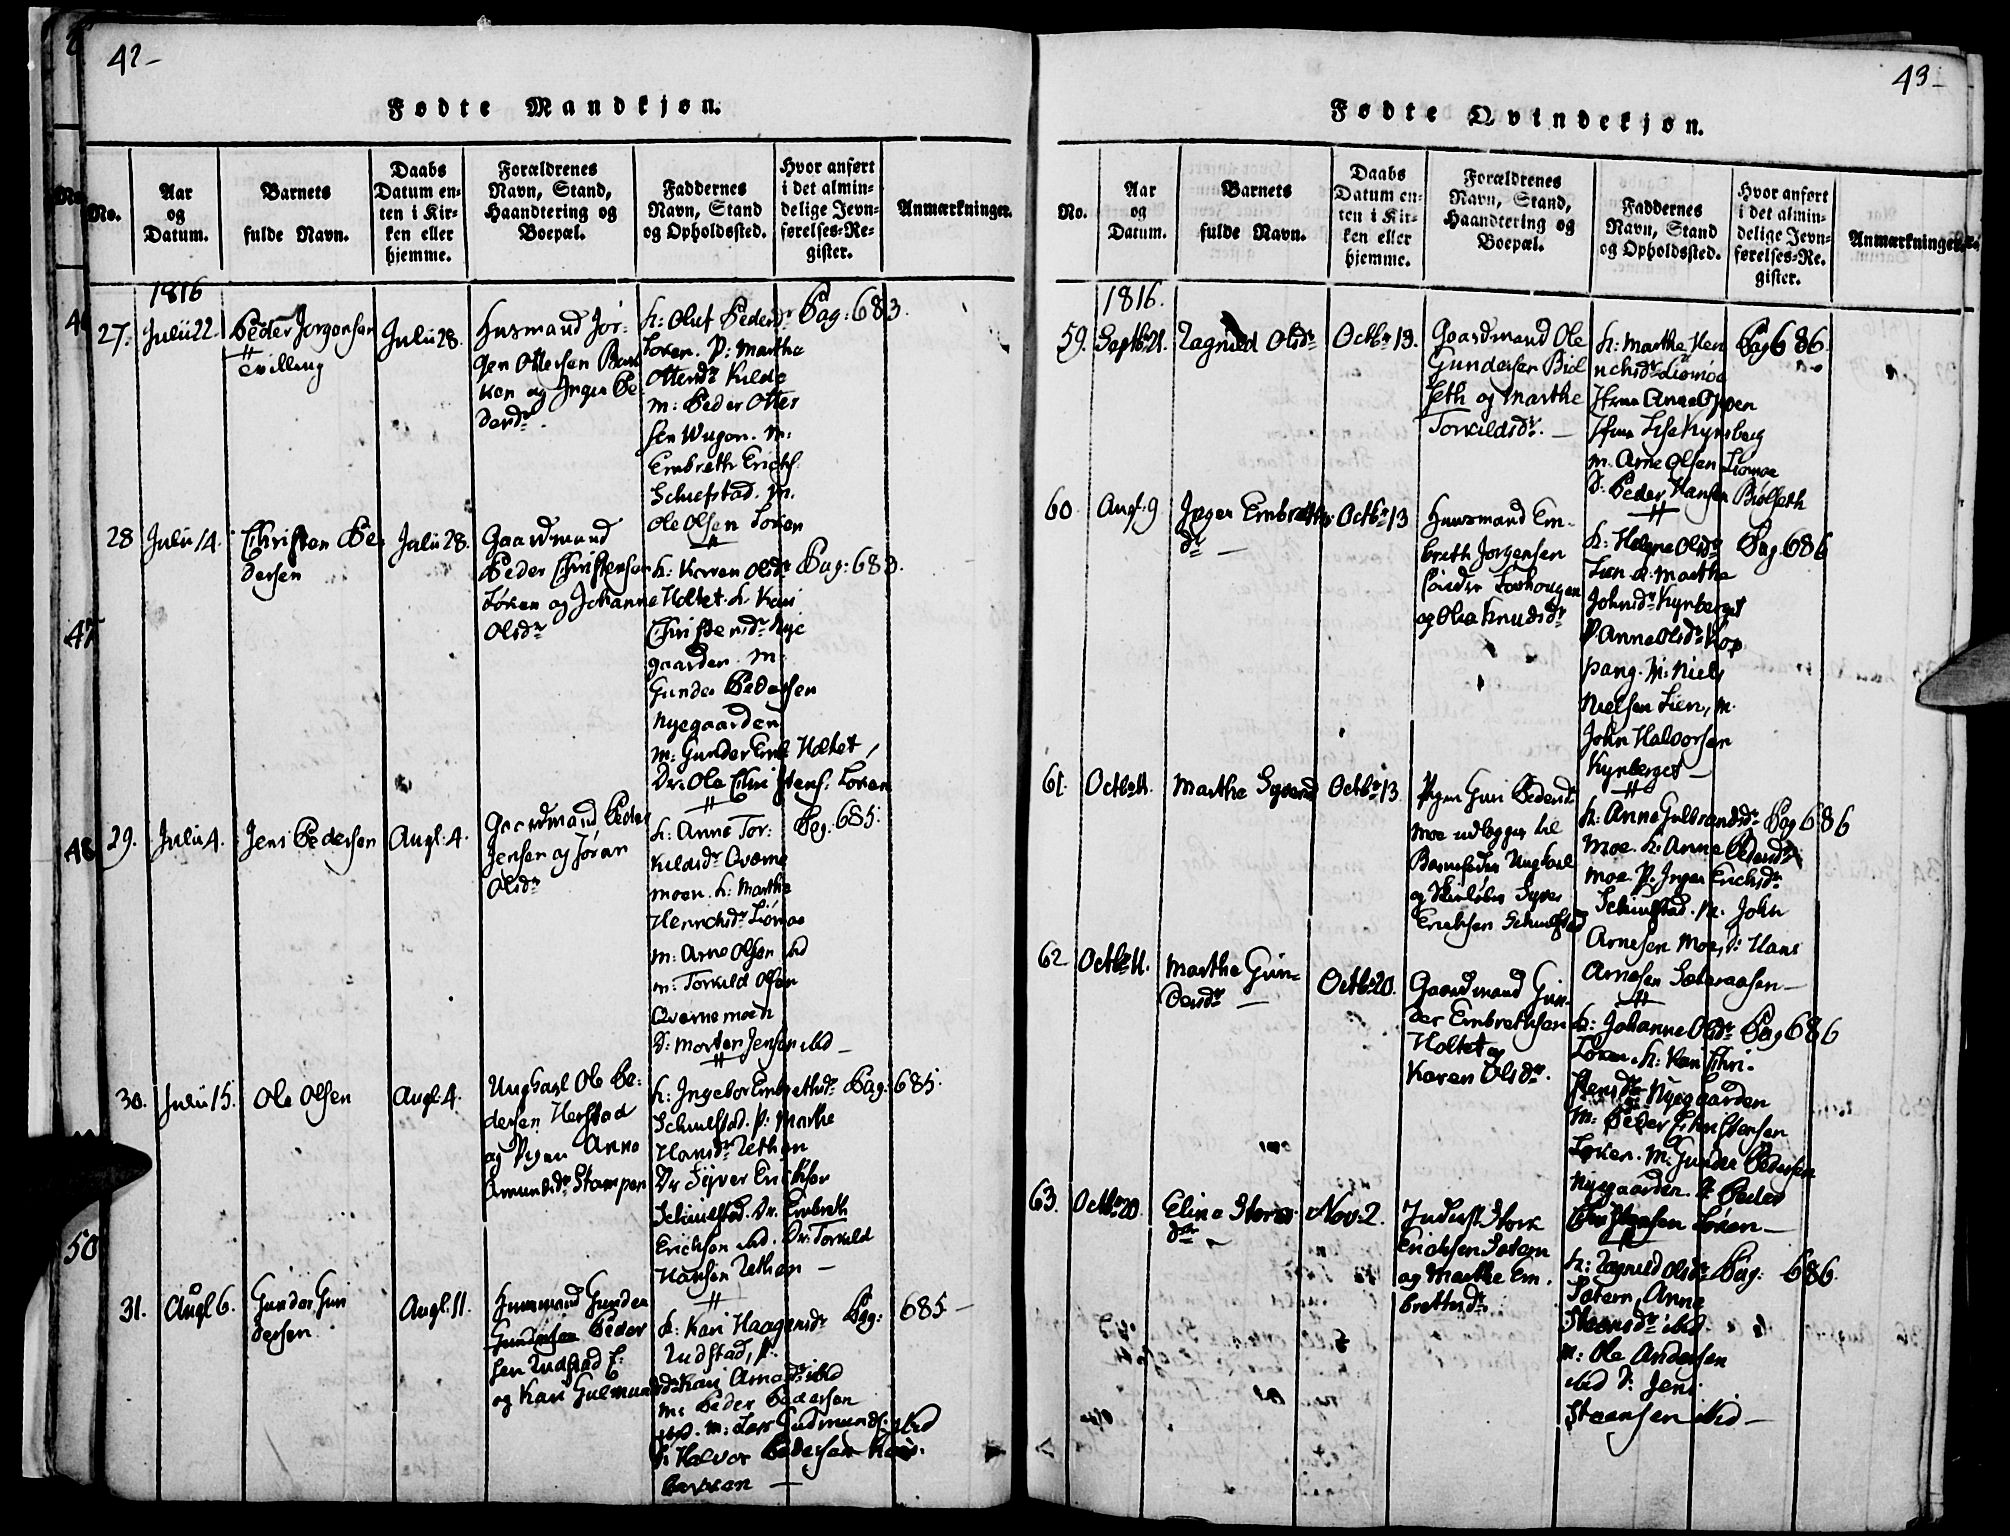 42-
Fødte Mandkjøn.
No.
Aar
og
Datum.
Barnets
fulde Navn.
Daabs
Datum en-
ten i Kir-
ken eller
hjemme.
Forældrenes
Navn, Stand,
Haandtering og
Boepæl.
Faddernes
Navn, Stand
og Opholdssted.
Hvor anført
i det almin-
delige Jevn-
førelses-Re-
gister.
Anmærkninger.
1816
27.
Julii 22
Peder Jørgensen
Tvilling
Julii 28.
Husmand Jør-
gen Ottersen
ken og Inger Pe
dersdr.
k: Oluf Pedersdr
Løken. P: Marthe
Ottersdr Kilde
M: Peder Otter
sen Wugon. M:
Embreth Erichs.
Schiefstad. M.
Ole Olsen Løken
Pag: 683.
28
Julii 14.
Christen Pe
dersen
Julii 28.
Gaardmand
Peder Christensen
Løken og Johanne
Olsdr
k: Karen Olsdr
Holtet. k. Kari
Christensdr Nye
gaarden. M:
Gunder Pedersen
Nyegaarden
M: Gunder Emb. Holtet,
Dr: Ole Christens: Løken
Pag: 683.
29.
Julii 4.
Jens Pedersen
Augl. 4.
Gaardmand Peder
Jensen og Jøran
Olsdr
k: Anne Tor:
kildsdr Qværne
moen. k: Marthe
Henrichsdr Liømoe
M: Arne Olsen ibd
M: Torkild Olsen
Qværnemoen
D: Morten Jensen ibd -
Pag: 685.
30.
Julii 15.
Ole Olsen
Augl. 4.
Ungkarl Ole Pe:
dersen Herstad
og Pigen Anne
Amundsdr Stampen
k: Ingebor Embrethsdr
Schiulstad. P: Marthe
Hansdr Rethen
Dr Syver Erichsen
Schiulstad. Dr. Embreth
Erichsen ibd. Dr: Torkild
Hansen Rethen -
Pag: 685.
31.
Augl 6.
Gunder Gun
dersen
Augl. 11.
Husmand Gunder
Gundersen Peder
sen Rudstad E:
og Kari Gulmundsdr
k: Kari Haagensdr
Rudstad, P:
Kari Arnesdr ibd
M: Peder Pedersen
ibd. M: Lars Gudmunds: ibd
D: Halvor Pedersen
Pag: 685 -
46
47
48
50
43-
Fødte Qvindekjøn.
No.
Aar
og
Datum.
Barnets
fulde Navn.
Daabs
Datum en-
ten i Kir-
ken eller
hjemme.
Forældrenes
Navn, Stand,
Haandtering og
Boepæl.
Faddernes
Navn, Stand
og Opholdssted.
Hvor anført
i det almin-
delige Jevn-
førelses-Re-
gister.
Anmærkninger.
1816.
59.
Septbr 21.
Ragnild Olsdr
Octbr 13.
Gaardmand Ole
Gundersen Biøl
seth og Marthe
Torkildsdr. -
k: Marthe Hen
richsdr Liømoe
Anne Opsen
Lise Kynsberg
M. Arne Olsen Liømoe
D. Peder Hansen Biølseth
Pag 686.
60.
Augl. 9
Inger Embreths
dr -
Octbr 13
Huusmand Em-
breth Jørgensen
og Olea Knudsdr
k: Helgne Olsdr
Lien k: Marthe
Johnsdr Kynberget
P Anne Olsdr Kop
pang. M: Niels
Nielsen Lien, M.
John Halvorsen
Kynberget -
Pag. 686
61.
Octbr 11.
Marthe Syversd
Octbr 13
Pigen Guri Pedersdr
Moe udlægger til
Barnefader Ungkarl
og Syver
Erichsen Schiulstad
k: Anne Gulbrandsdr
Moe. k: Anne Pedersdr
Moe P. Inger Erichsdr
Schiulstad. M: John
Arnesen Moe, D: Hans
Arnesen Sæteraasen -
Pag 686
62
Octbr 11.
Marthe Gun-
dersdr -
Octbr 20.
Gaardmand Gun-
der Embrethsen
Holtet og
Karen Olsdr.
k: Johanne Olsdr
Løken. k: Kari Chri-
stensdr Nyegaarden
M: Peder Christensen
Løken. M: Gunder Pedersen
Nyegaarden. D Peder
Christensen Løken -
Pag 686
63.
Octbr 20.
Eline Stens
dr -
Nov. 2.
Inderst Sten
Erichsen Sætern
og Marthe Em-
brethsdr.
k: Ragnild Olsdr
Sætern, Anne
Steensdr ibd
M: Ole Andersen
ibd D: Jens
Steensen ibd -
Pag: 686.